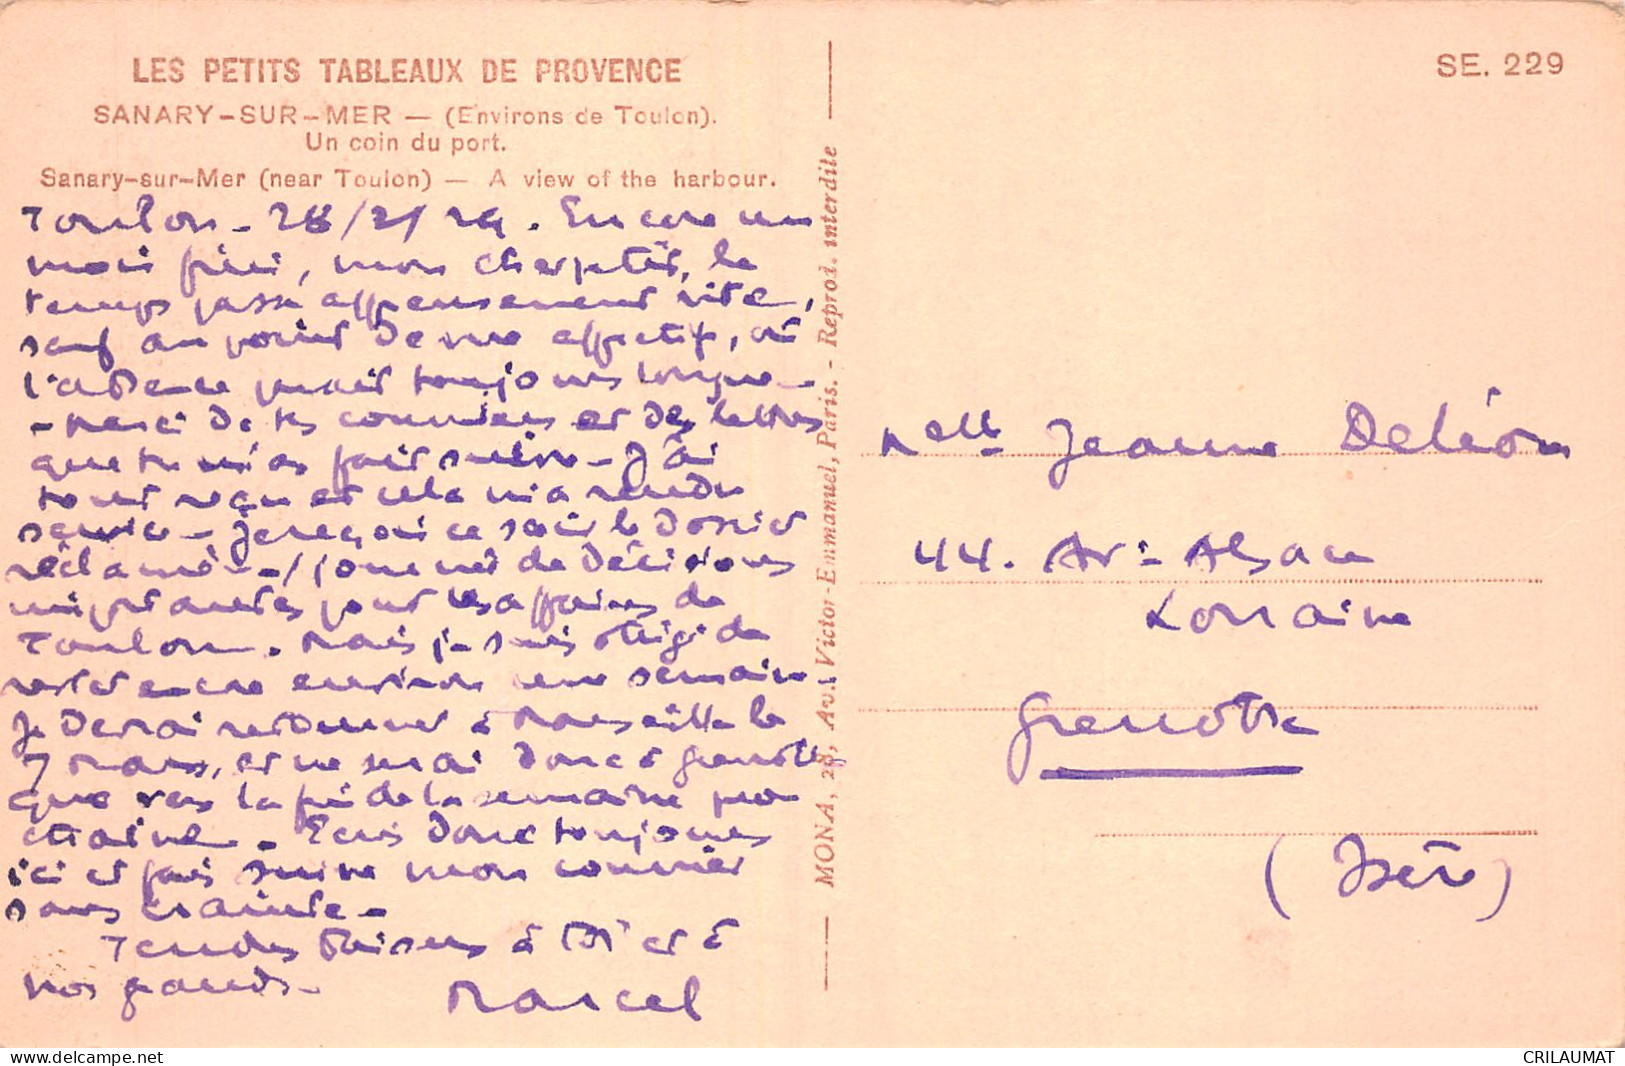 LES PETITS TABLEAUX DE PROVENCE
SANARY-SUR-MER — (Environs de Toulon).
Un coin du port.
Sanary-sur-Mer (near Toulon) — A view of the harbour.
Toulon - 28/2/29. Encore un
mois fini, mon cher petit, le
temps passe affreusement vite,
sauf au point de vue affectif, où
l'absence paraît toujours longue -
- Merci de tes courriers et des lettres
que tu m'as fait suivre - J'ai
tout reçu et cela m'a rendu
service - Je reçois ce soir le dossier
réclamé - de décisions
importantes pour les affaires de
Toulon. Mais je suis obligé de
rester encore environ une semaine.
Je devrai retourner à Marseille le
7 Mars, et ne serai donc à Grenoble
que vers la fin de la semaine pro
chaine - Ecris donc toujours
ici et fais suivre mon courrier
sans crainte -
Tendres baisers à toi et à
nos grands -
Marcel
MONA, 28, Av. Victor-Emmanuel, Paris. - Reprod. interdite
SE. 229
Melle Jeanne Deléon
44. Av. Alsace
Lorraine
Grenoble
(Isère)
CRILAUMAT
www.delcampe.net